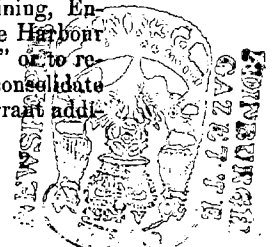 ining, En-
e Harbour
” or to re-
consolidate
rrant addi-
EDINBURGH
GAZETTE